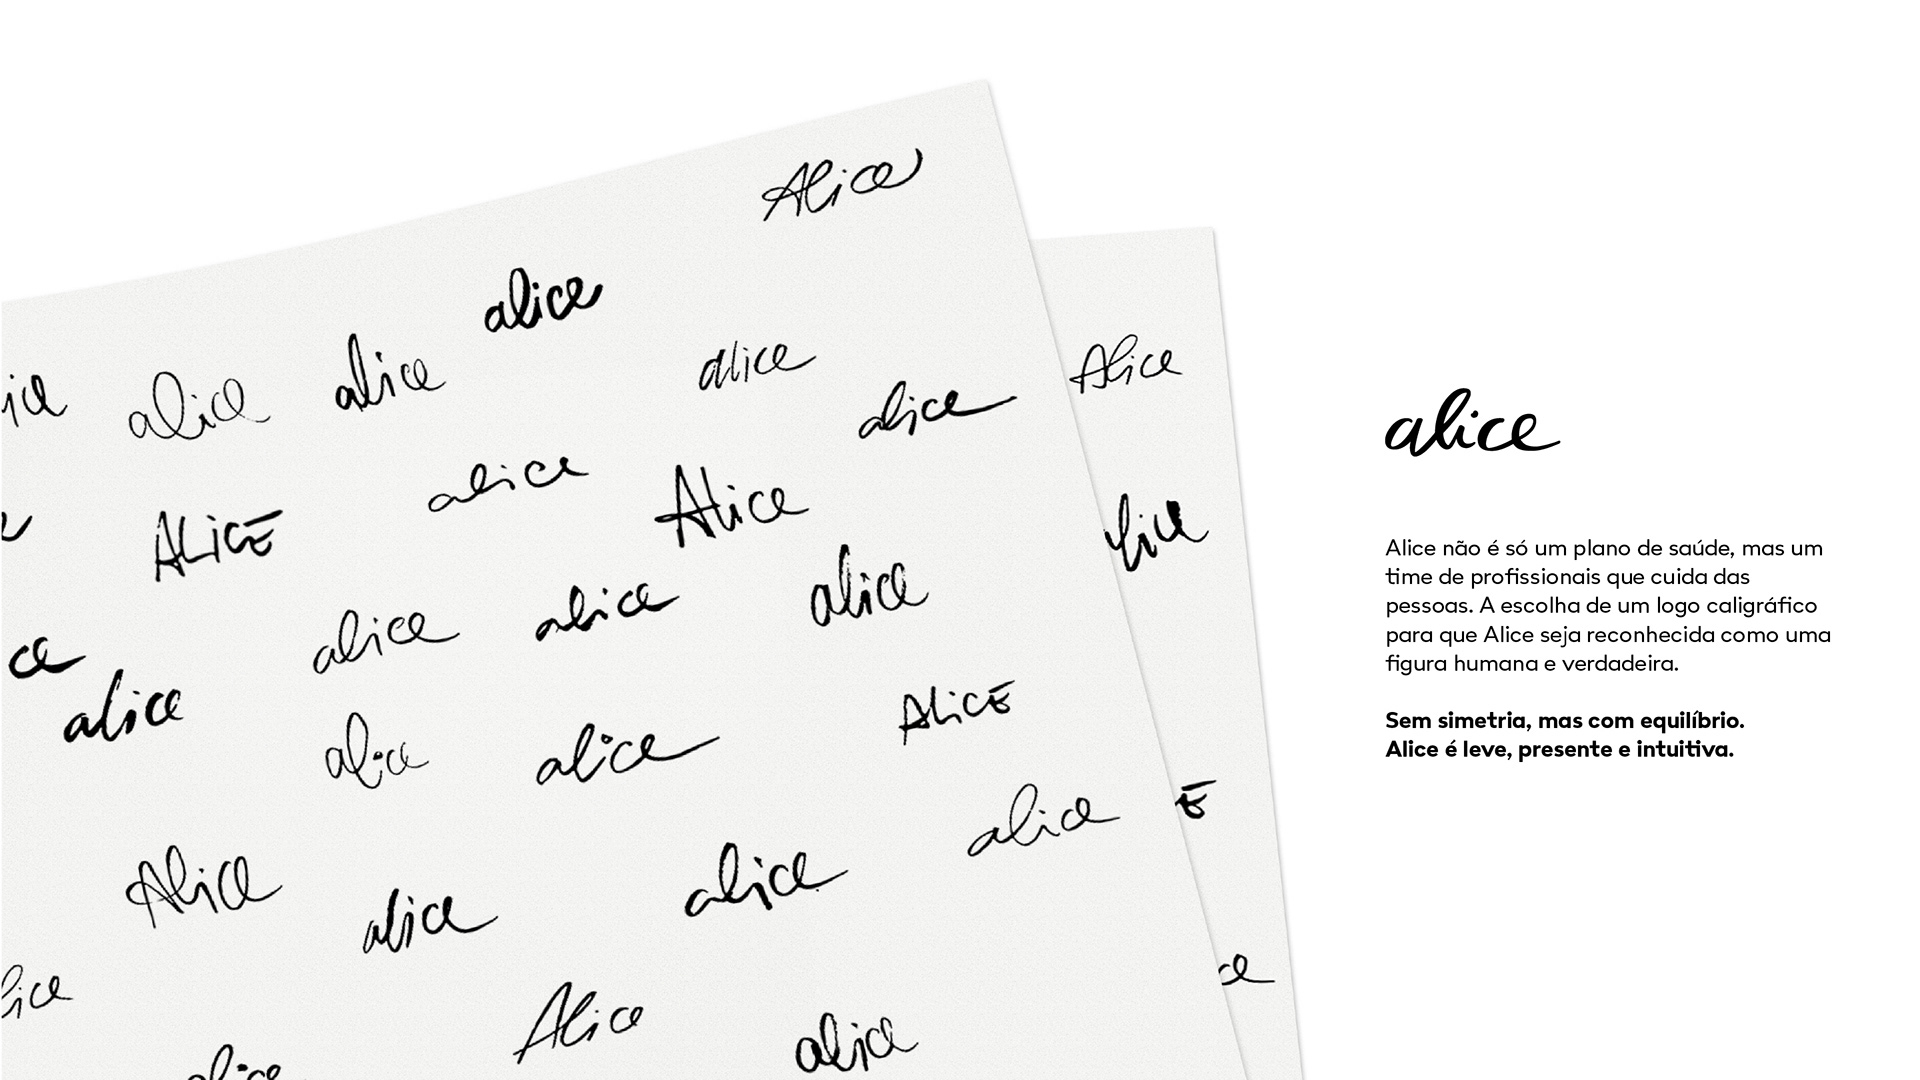 Alice
alice
alice
alice
alice
Alice
alice
alice
Alice
ALICE
alice
alice
alice
alice
alice
ALICE
alice
alice
alice
alice
Alice
alice
Alice
alice
alice
Alice não é só um plano de saúde, mas um
time de profissionais que cuida das
pessoas. A escolha de um logo caligráfico
para que Alice seja reconhecida como uma
figura humana e verdadeira.
Sem simetria, mas com equilíbrio.
Alice é leve, presente e intuitiva.